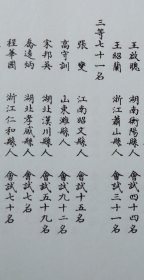 王啟聰 湖南衡陽縣人 會試四十四名
王紹蘭 浙江蕭山縣人 會試三十一名
三等七十一名
張燮 江南昭文縣人 會試十五名
高守訓 山東濰縣人 會試九十二名
宋邦英 湖北漢川縣人 會試五十九名
喬遠煐 湖北孝感縣人 會試七名
程善國 浙江仁和縣人 會試七十名